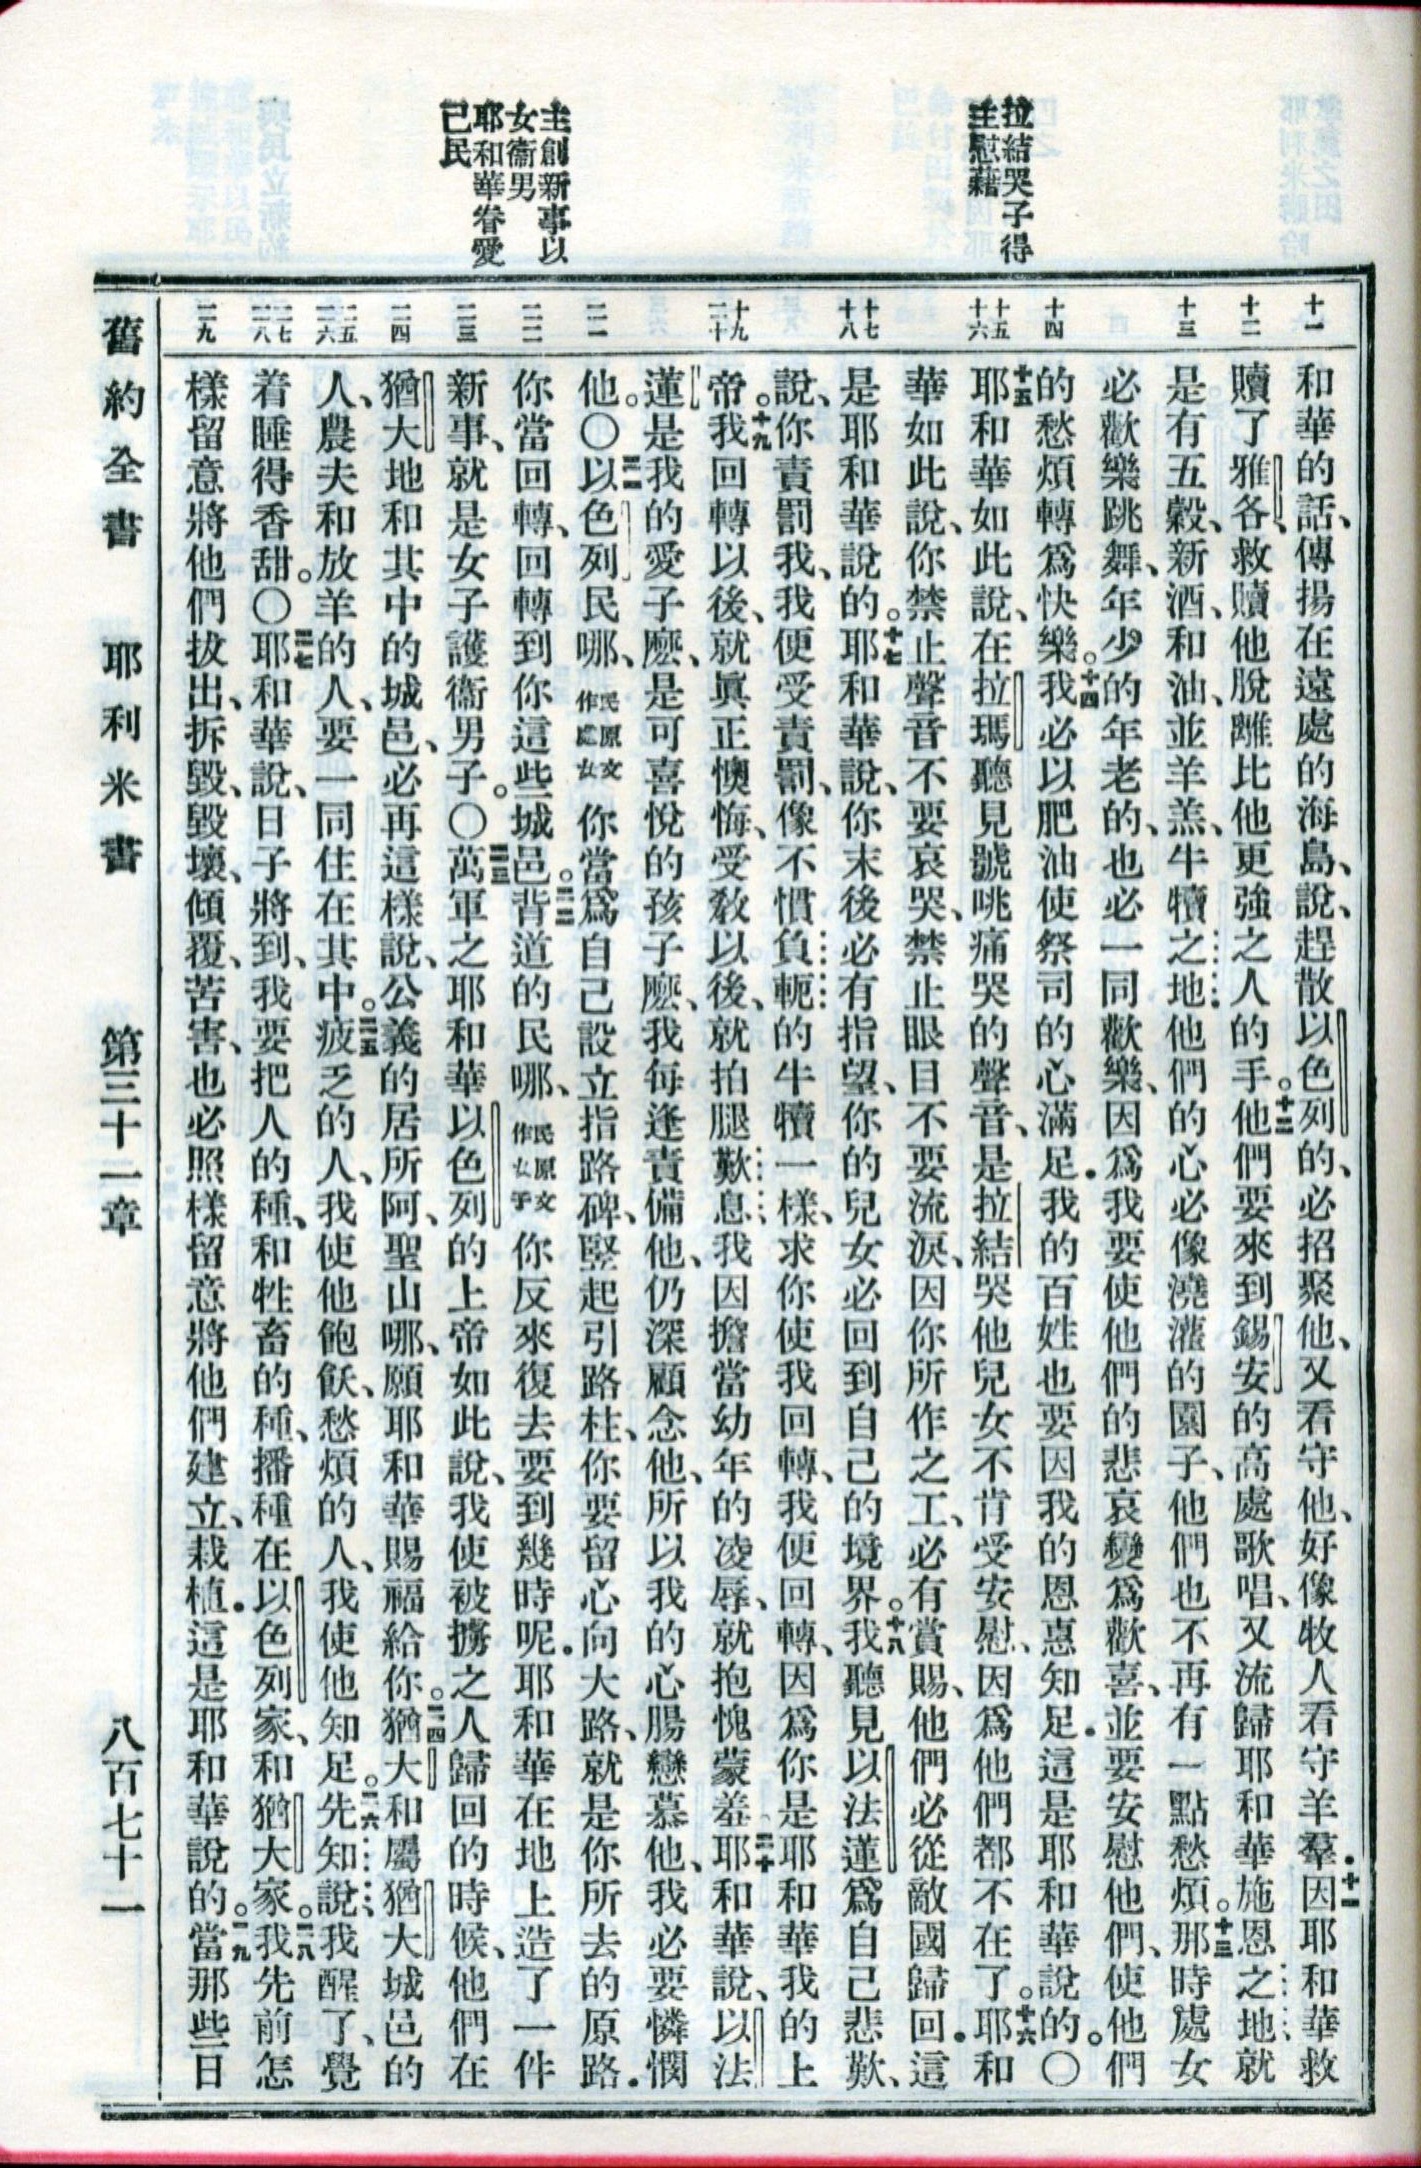 拉結哭子得
主慰藉
主創新事以
女衞男
耶和華眷愛
己民
十一
十二
十三
十四
十五
十六
十七
十八
十九
二十
二一
二二
二三
二四
二五
二六
二七
二八
二九
和華的話、傳揚在遠處的海島、說、趕散以色列的、必招聚他、又看守他、好像牧人看守羊羣.十一因耶和華救
贖了雅各、救贖他脫離比他更強之人的手。十二他們要來到錫安的高處歌唱、又流歸耶和華施恩之地就
是有五穀、新酒、和油、並羊羔、牛犢之地他們的心必像澆灌的園子、他們也不再有一點愁煩。十三那時處女
必歡樂跳舞、年少的年老的、也必一同歡樂、因爲我要使他們的悲哀變爲歡喜、並要安慰他們、使他們
的愁煩轉爲快樂。十四我必以肥油使祭司的心滿足.我的百姓也要因我的恩惠知足.這是耶和華說的。〇
十五耶和華如此說、在拉瑪聽見號咷痛哭的聲音、是拉結哭他兒女不肯受安慰、因爲他們都不在了。十六耶和
華如此說、你禁止聲音不要哀哭、禁止眼目不要流淚、因你所作之工、必有賞賜、他們必從敵國歸回.這
是耶和華說的。十七耶和華說、你末後必有指望、你的兒女必回到自己的境界。十八我聽見以法蓮爲自己悲歎、
說、你責罰我、我便受責罰、像不慣負軛的牛犢一樣、求你使我回轉、我便回轉、因爲你是耶和華我的上
帝。十九我回轉以後、就眞正懊悔、受敎以後、就拍腿歎息、我因擔當幼年的凌辱、就抱愧蒙羞。二十耶和華說、以法
蓮是我的愛子麼、是可喜悅的孩子麼、我每逢責備他、仍深顧念他、所以我的心腸戀慕他、我必要憐憫
他。〇二一以色列民哪、民原文作處女你當爲自己設立指路碑、竪起引路柱、你要留心向大路、就是你所去的原路.
二二你當回轉、回轉到你這些城邑背道的民哪、民原文作女子你反來復去要到幾時呢.耶和華在地上造了一件
新事、就是女子護衞男子。〇二三萬軍之耶和華以色列的上帝如此說、我使被擄之人歸回的時候、他們在
猶大地和其中的城邑、必再這樣說、公義的居所阿、聖山哪、願耶和華賜福給你。二四猶大和屬猶大城邑的
人、農夫和放羊的人、要一同住在其中。二五疲乏的人、我使他飽飫、愁煩的人、我使他知足。二六先知說我醒了、覺
着睡得香甜。〇二七耶和華說、日子將到、我要把人的種、和牲畜的種、播種在以色列家、和猶大家。二八我先前怎
樣留意將他們拔出、拆毀、毀壞、傾覆、苦害、也必照樣留意將他們建立、栽植.這是耶和華說的。二九當那些日
舊約全書　耶利米書　第三十一章　八百七十二